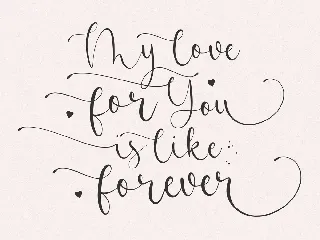 My love
for You
is like
forever